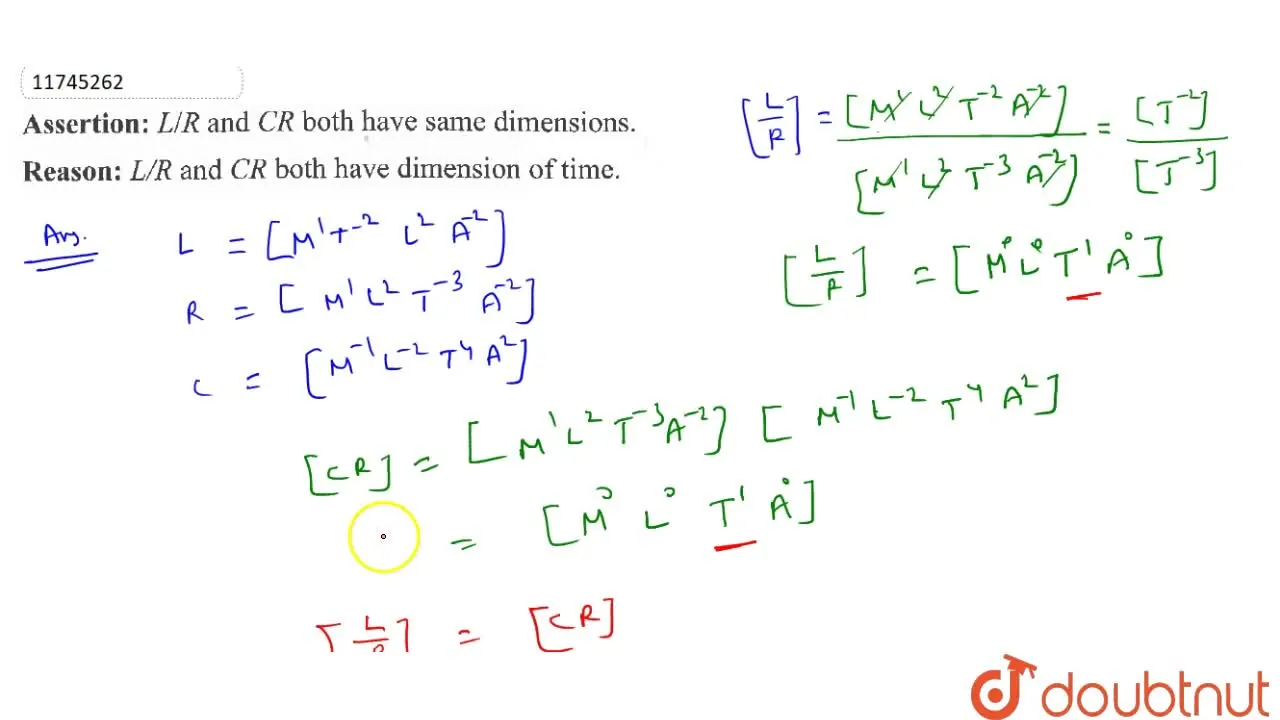 11745262
Assertion: L/R and CR both have same dimensions.
Reason: L/R and CR both have dimension of time.
Ans.
L = [M¹T⁻² L² A⁻²]
R = [M¹ L² T⁻³ A⁻²]
C = [M⁻¹ L⁻² T⁴ A²]
[L/R] = [M¹ L² T⁻² A⁻²] / [M¹ L² T⁻³ A⁻²] = [T⁻²] / [T⁻³]
[L/R] = [M⁰ L⁰ T¹ A⁰]
[CR] = [M¹ L² T⁻³ A⁻²] [M⁻¹ L⁻² T⁴ A²]
= [M⁰ L⁰ T¹ A⁰]
[L/R] = [CR]
doubtnut